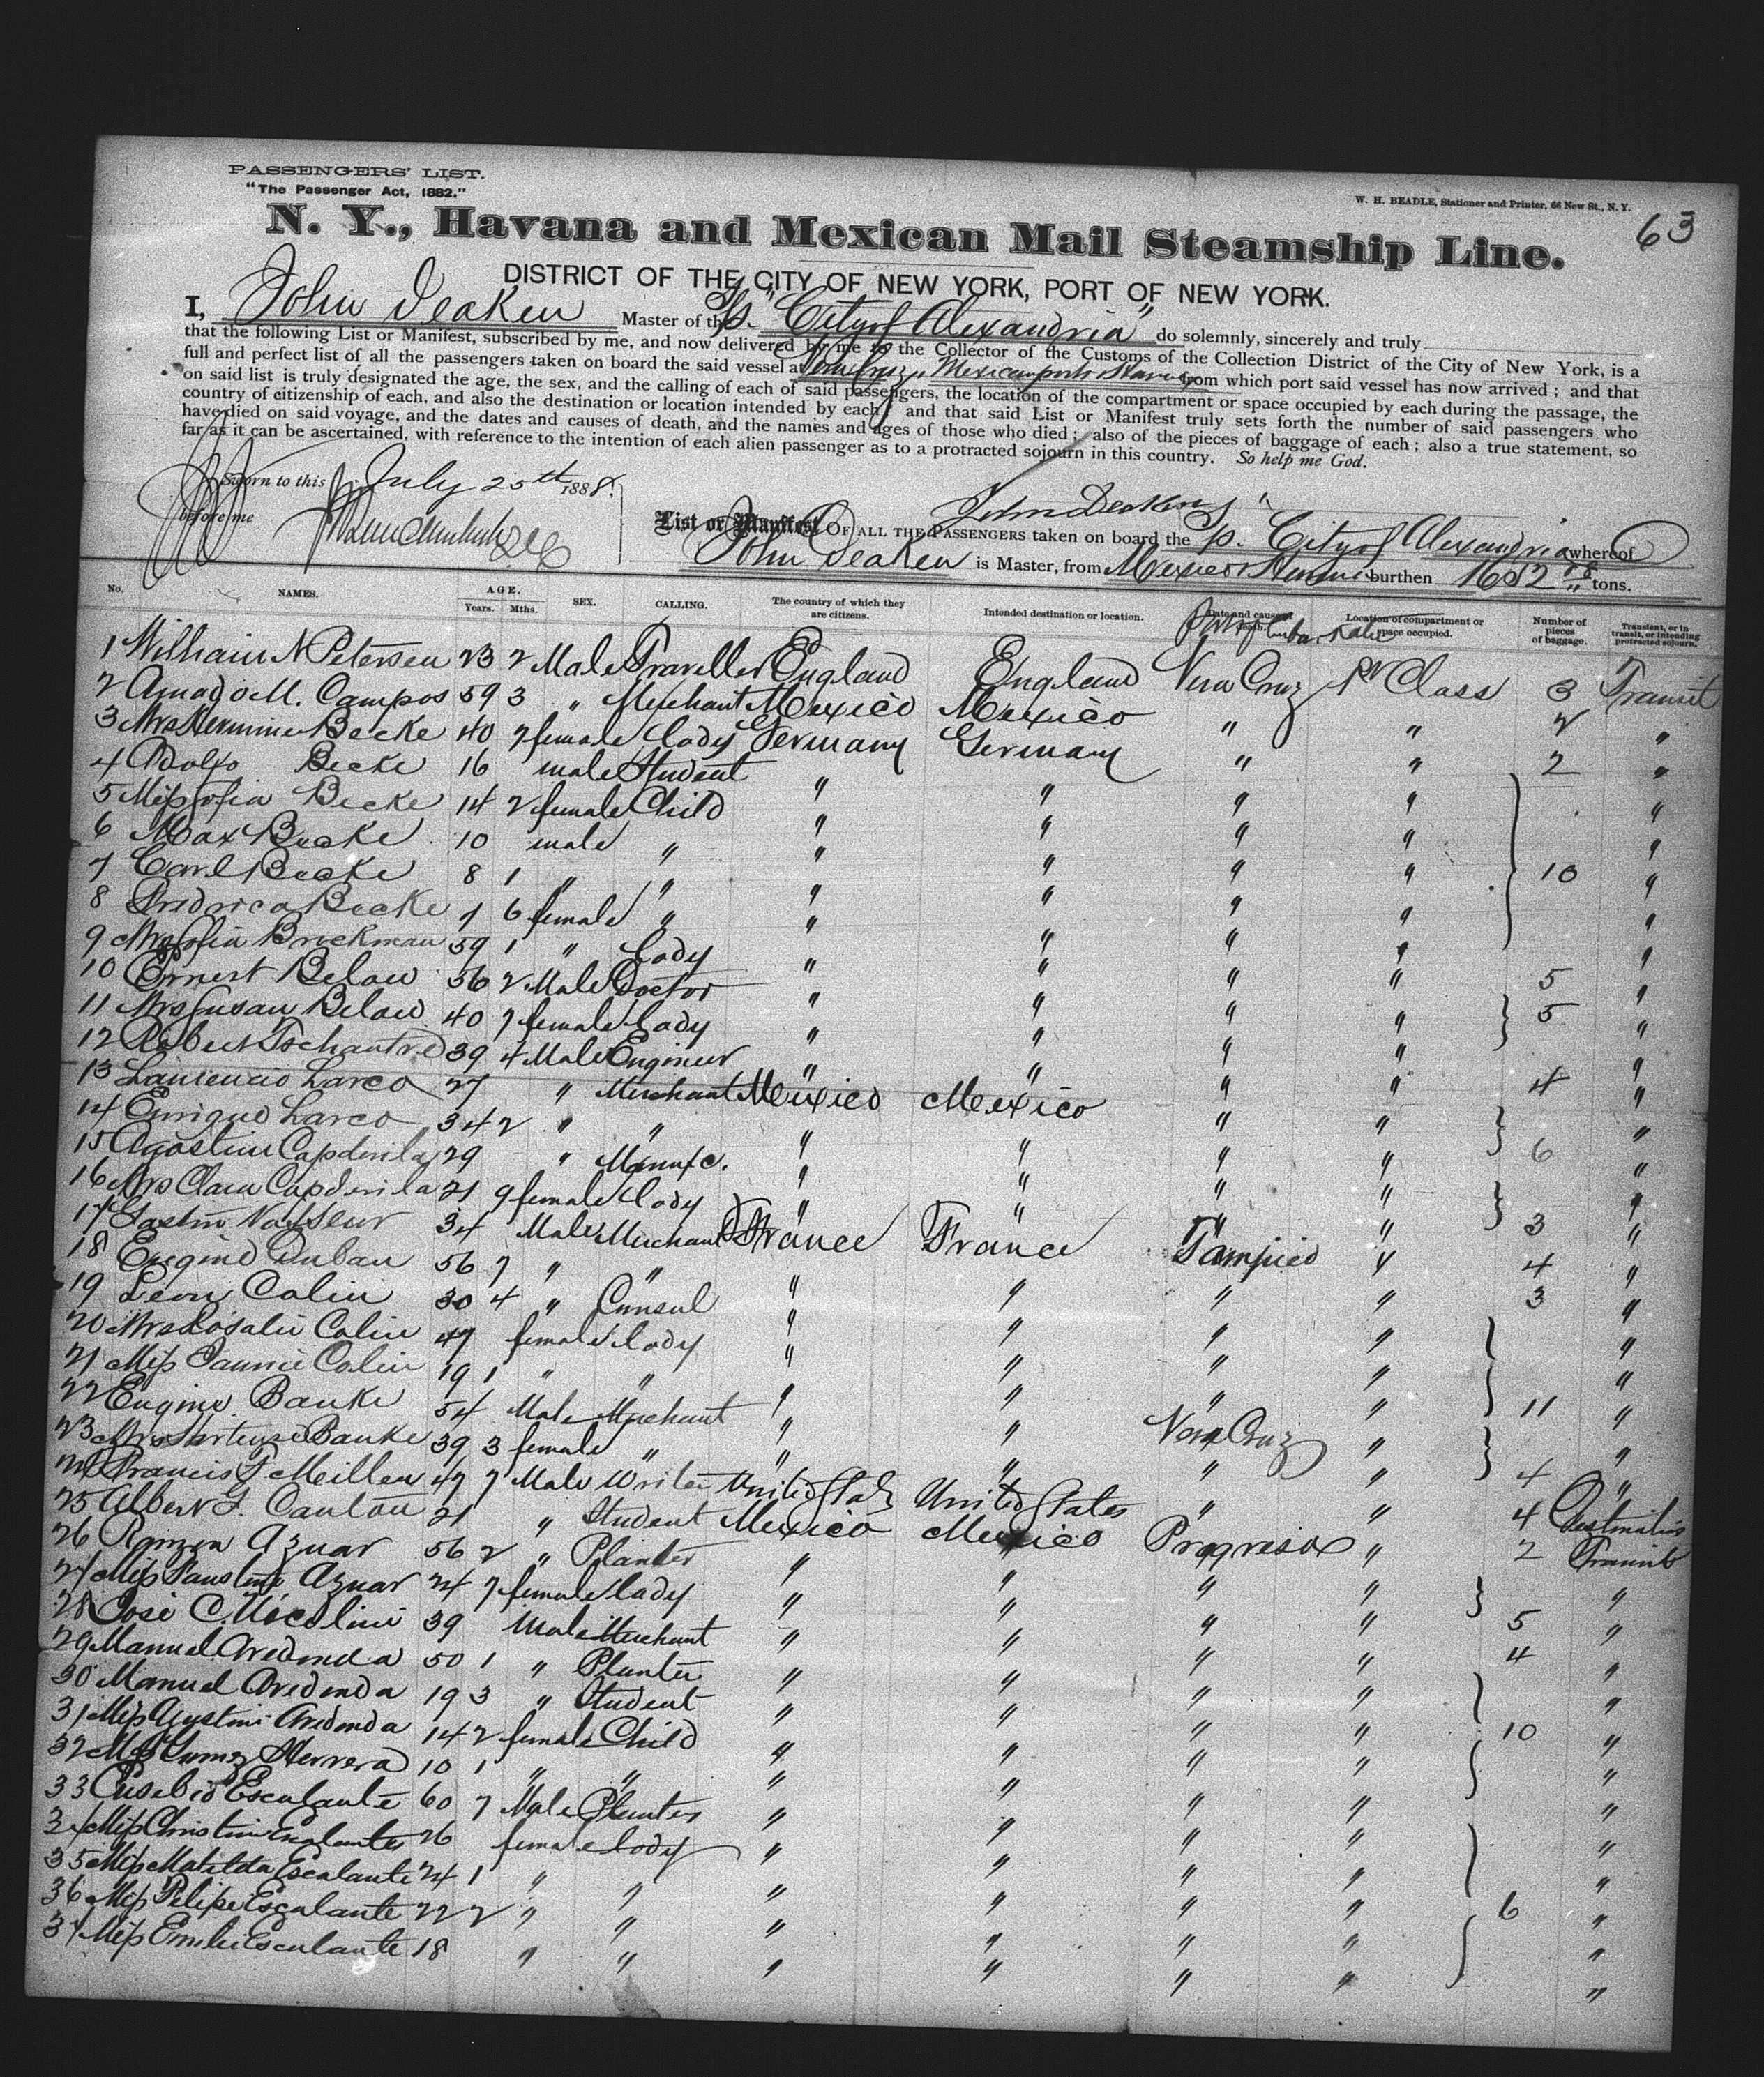 PASSENGERS' LIST.
"The Passenger Act, 1882."
W. H. BEADLE, Stationer and Printer, 66 New St., N. Y.
63
N. Y., Havana and Mexican Mail Steamship Line.
DISTRICT OF THE CITY OF NEW YORK, PORT OF NEW YORK.
I, John Deaken Master of the Sp. "City of Alexandria" do solemnly, sincerely and truly
that the following List or Manifest, subscribed by me, and now delivered by me to the Collector of the Customs of the Collection District of the City of New York, is a
full and perfect list of all the passengers taken on board the said vessel at Vera Cruz, Mexican ports & Havana from which port said vessel has now arrived; and that
on said list is truly designated the age, the sex, and the calling of each of said passengers, the location of the compartment or space occupied by each during the passage, the
country of citizenship of each, and also the destination or location intended by each; and that said List or Manifest truly sets forth the number of said passengers who
have died on said voyage, and the dates and causes of death, and the names and ages of those who died; also of the pieces of baggage of each; also a true statement, so
far as it can be ascertained, with reference to the intention of each alien passenger as to a protracted sojourn in this country. So help me God.
Sworn to this July 25th 1888.
before me
John Deaken
List or Manifest OF ALL THE PASSENGERS taken on board the Sp. City of Alexandria whereof
John Deaken is Master, from Mexico & Havana burthen tons.
No. NAMES. AGE. Years. Mths. SEX. CALLING. The country of which they are citizens. Intended destination or location. Date and cause of death. Port of Embarkation Location of compartment or space occupied. Number of pieces of baggage. Transient, or in transit, or intending protracted sojourn.
1 William N Petersen 23 2 Male Traveller England England Vera Cruz 1st Class 3 Transit
2 Amado M. Campos 59 3 " Merchant Mexico Mexico " " 2 "
3 Mrs Hermine Becke 40 7 female Lady Germany Germany " " 2 "
4 Adolfo Becke 16 male Student " " " " "
5 Miss Sofia Becke 14 2 female Child " " " " "
6 Max Becke 10 male " " " " " "
7 Carl Becke 8 1 " " " " " " 10 "
8 Fredrica Becke 7 6 female " " " " " "
9 Mrs Sofia Brockman 59 1 " Lady " " " " "
10 Ernest Below 56 2 Male Doctor " " " " 5 "
11 Mrs Susan Below 40 7 female Lady " " " " 5 "
12 Robert 39 4 Male Engineer " " " " "
13 Laurencio Larco 27 " Merchant Mexico Mexico " " 4 "
14 Enrique Larco 34 2 " " " " " " "
15 Agostin Capdevila 29 " Manufc. " " " " 6 "
16 Mrs Clara Capdevila 21 9 female Lady " " " " "
17 Gaston 34 Male Merchant France France Tampico " 3 "
18 Eugine Duban 56 7 " " " " " " 4 "
19 Leon Colin 30 4 " Consul " " " " 3 "
20 Mrs Rosalie Colin 47 female Lady " " " " "
21 Miss Fannie Colin 19 1 " " " " " " "
22 Eugine Banke 54 Male Merchant " " " " 11 "
23 Mrs Hortense Banke 39 3 female " " " Vera Cruz " "
24 Francis Millen 47 7 Male Writer United States United States " " 4 "
25 Albert G. Canton 21 " Student Mexico Mexico Progreso " 4 Destination
26 Ramon Aznar 56 2 " Planter " " " " 2 Transit
27 Miss Faustine Aznar 24 7 female Lady " " " " "
28 Jose C. 39 Male Merchant " " " " 5 "
29 Manuel Aredonda 50 1 " Planter " " " " 4 "
30 Manuel Aredonda 19 3 " Student " " " " "
31 Miss Agustini Aredonda 14 2 female Child " " " " 10 "
32 Miss Herrera 10 1 " " " " " " "
33 Eusebio Escalante 60 7 Male Planter " " " " "
34 Miss Christin Escalante 26 female Lady " " " " "
35 Miss Matilda Escalante 24 1 " " " " " " "
36 Miss Felipe Escalante 22 2 " " " " " " 6 "
37 Miss Emilie Escalante 18 " " " " " " "